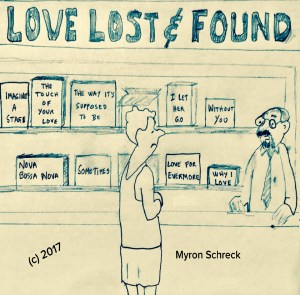 LOVE LOST & FOUND
IMAGINE
A
STAGE
THE
TOUCH
OF
YOUR
LOVE
THE WAY IT'S
SUPPOSED
TO BE
I LET
HER
GO
WITHOUT
YOU
NOVA
BOSSA NOVA
SOMETIMES
LOVE FOR
EVERMORE
WHY I
LOVE
(c) 2017
Myron Schreck